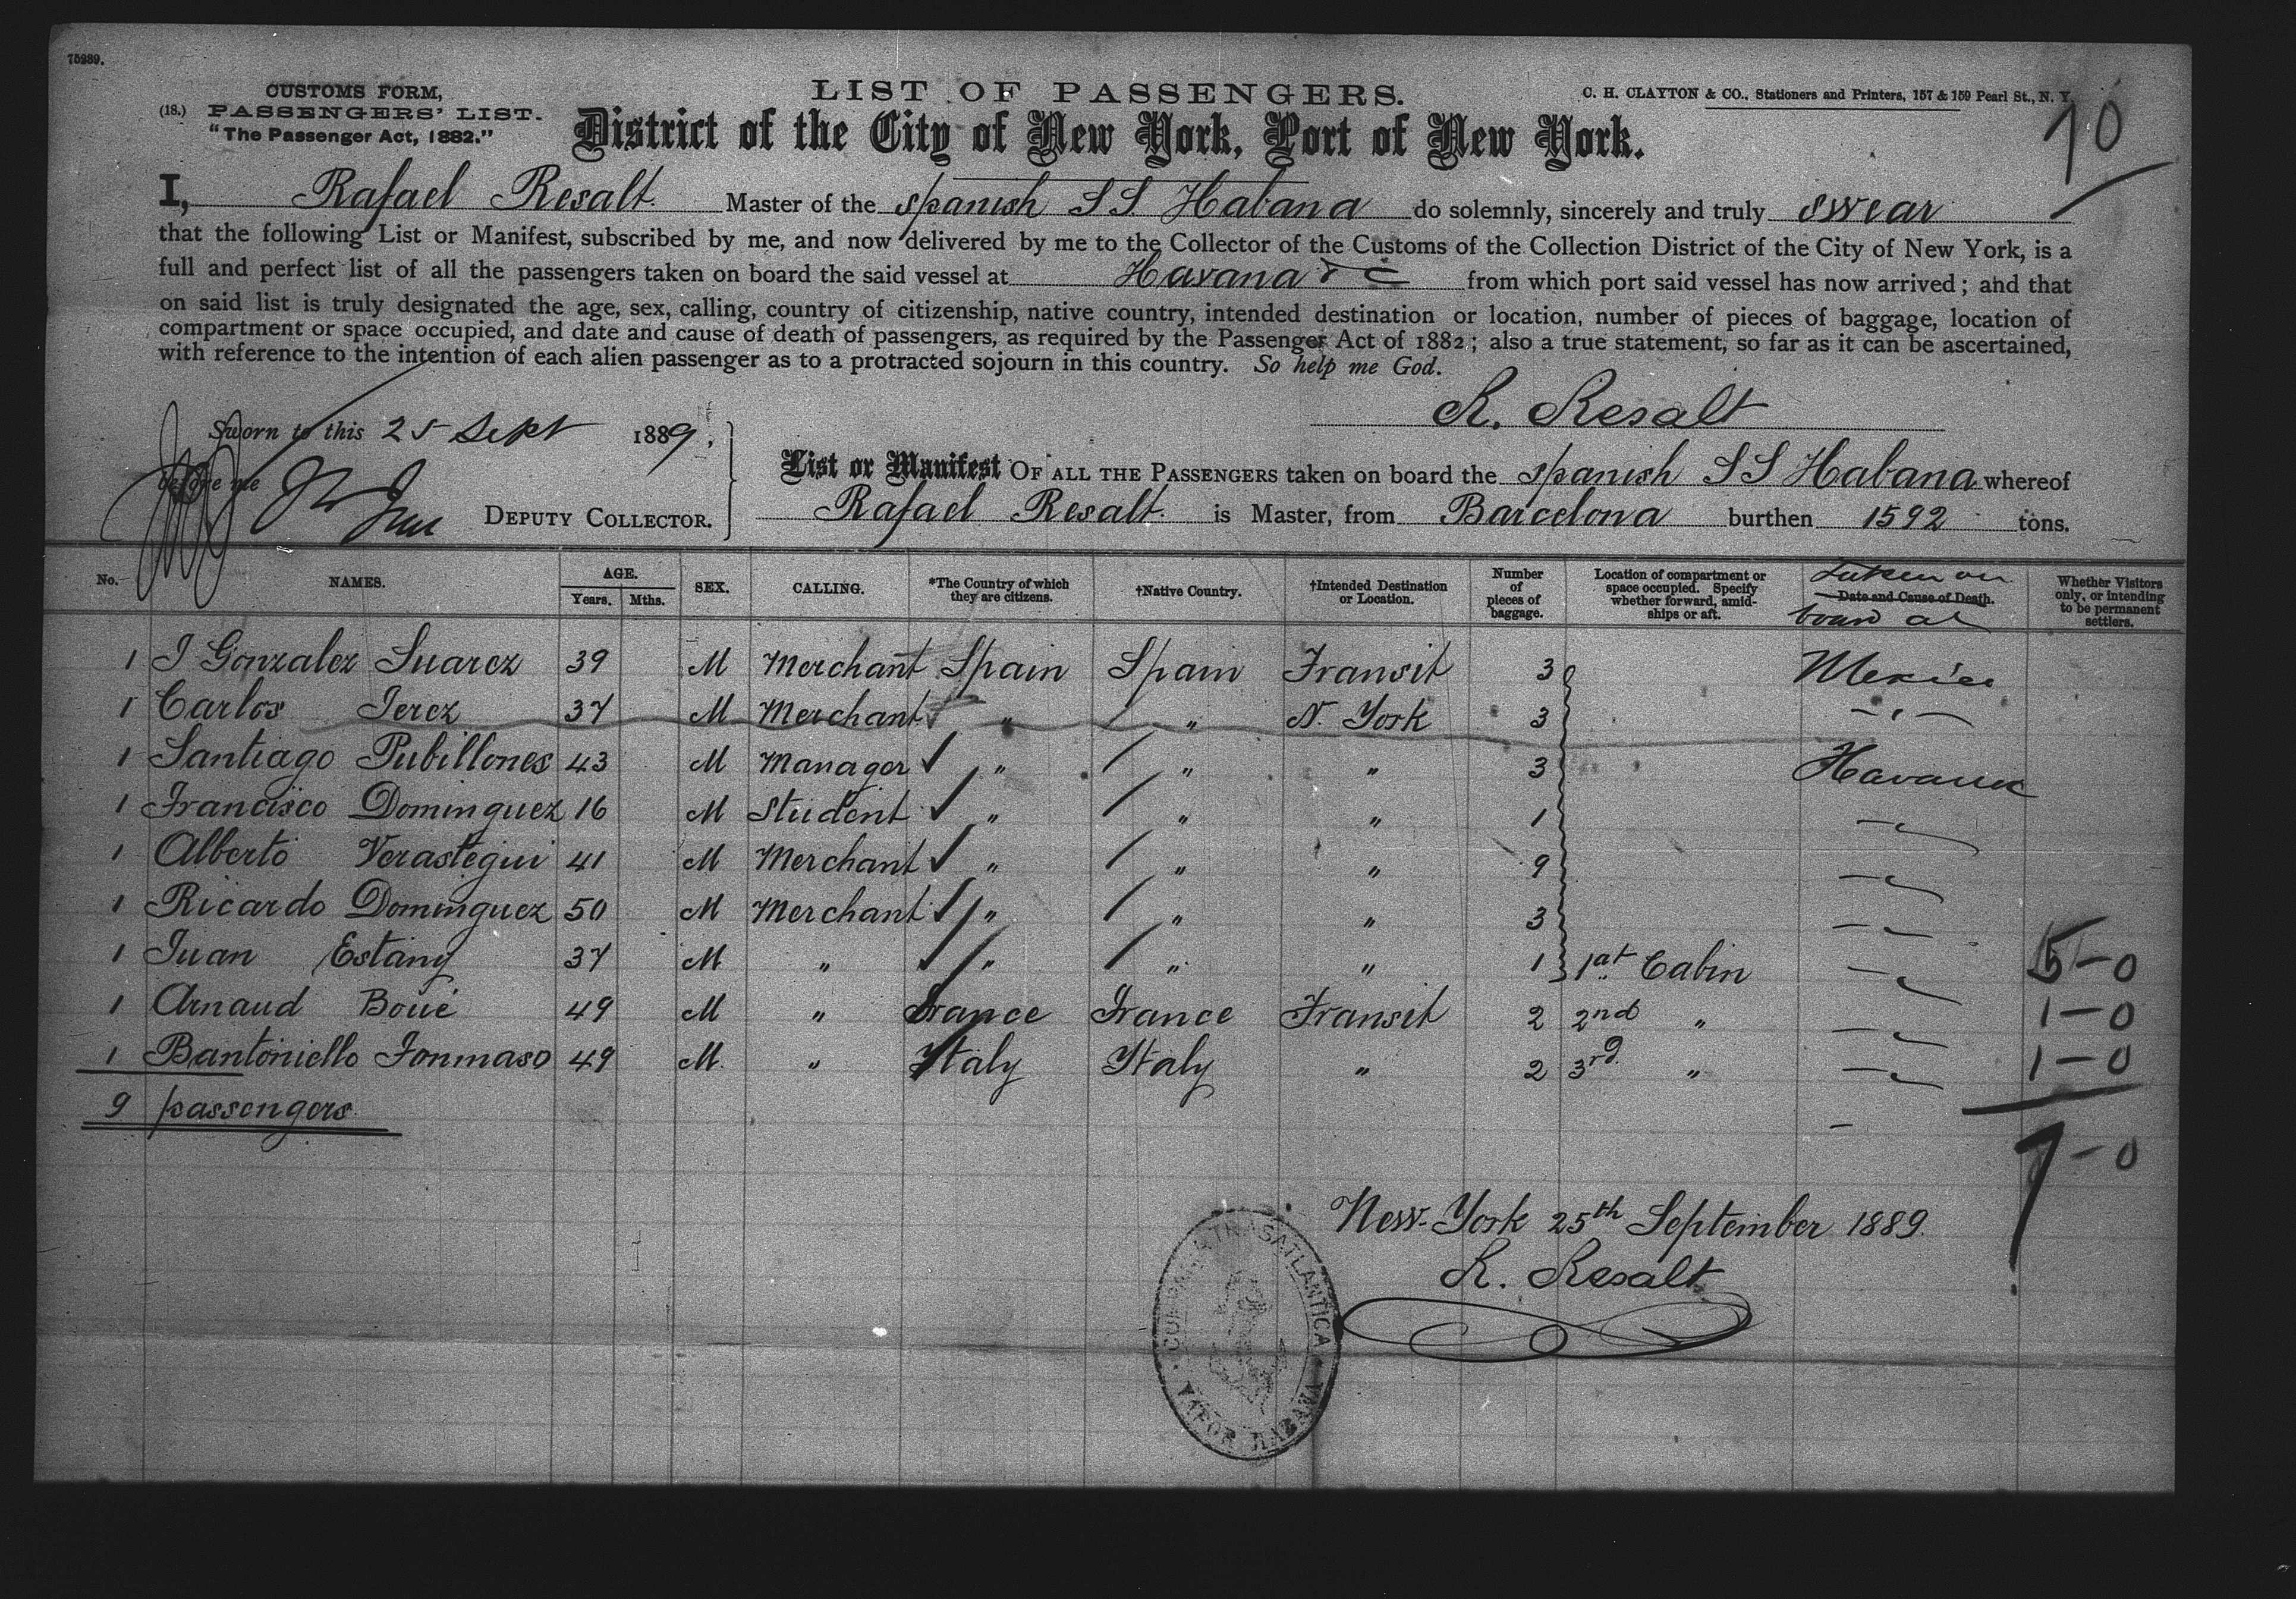 75989.
CUSTOMS FORM,
(18.) PASSENGERS' LIST.
"The Passenger Act, 1882."
LIST OF PASSENGERS.
C. H. CLAYTON & CO., Stationers and Printers, 157 & 159 Pearl St., N. Y.
District of the City of New York, Port of New York.
10
I, Rafael Resalt Master of the Spanish SS Habana do solemnly, sincerely and truly swear
that the following List or Manifest, subscribed by me, and now delivered by me to the Collector of the Customs of the Collection District of the City of New York, is a
full and perfect list of all the passengers taken on board the said vessel at Havana &c from which port said vessel has now arrived; and that
on said list is truly designated the age, sex, calling, country of citizenship, native country, intended destination or location, number of pieces of baggage, location of
compartment or space occupied, and date and cause of death of passengers, as required by the Passenger Act of 1882; also a true statement, so far as it can be ascertained,
with reference to the intention of each alien passenger as to a protracted sojourn in this country. So help me God.
R. Resalt
Sworn to this 25 Sept 1889,
before me
DEPUTY COLLECTOR.
List or Manifest OF ALL THE PASSENGERS taken on board the Spanish SS Habana whereof
Rafael Resalt is Master, from Barcelona burthen 1592 tons.
No. NAMES. AGE. Years. Mths. SEX. CALLING. *The Country of which they are citizens. †Native Country. †Intended Destination or Location. Number of pieces of baggage. Location of compartment or space occupied. Specify whether forward, amidships or aft. Date and Cause of Death. Taken on board at Whether Visitors only, or intending to be permanent settlers.
1 J Gonzalez Suarez 39 M Merchant Spain Spain Transit 3 Mexico
1 Carlos Jerez 37 M Merchant " " N. York 3 - " -
1 Santiago Pubillones 43 M Manager " " " 3 Havana
1 Francisco Dominguez 16 M Student " " " 1 - " -
1 Alberto Verastegui 41 M Merchant " " " 9 - " -
1 Ricardo Dominguez 50 M Merchant " " " 3 - " -
1 Juan Estany 37 M " " " " 1 1st Cabin - " - 5-0
1 Arnaud Boué 49 M " France France Transit 2 2nd " - " - 1-0
1 Bantoniello Tommaso 49 M " Italy Italy " 2 3rd " - " - 1-0
9 passengers
7-0
New-York 25th September 1889.
R. Resalt
COMPAÑIA TRASATLANTICA
VAPOR HABANA